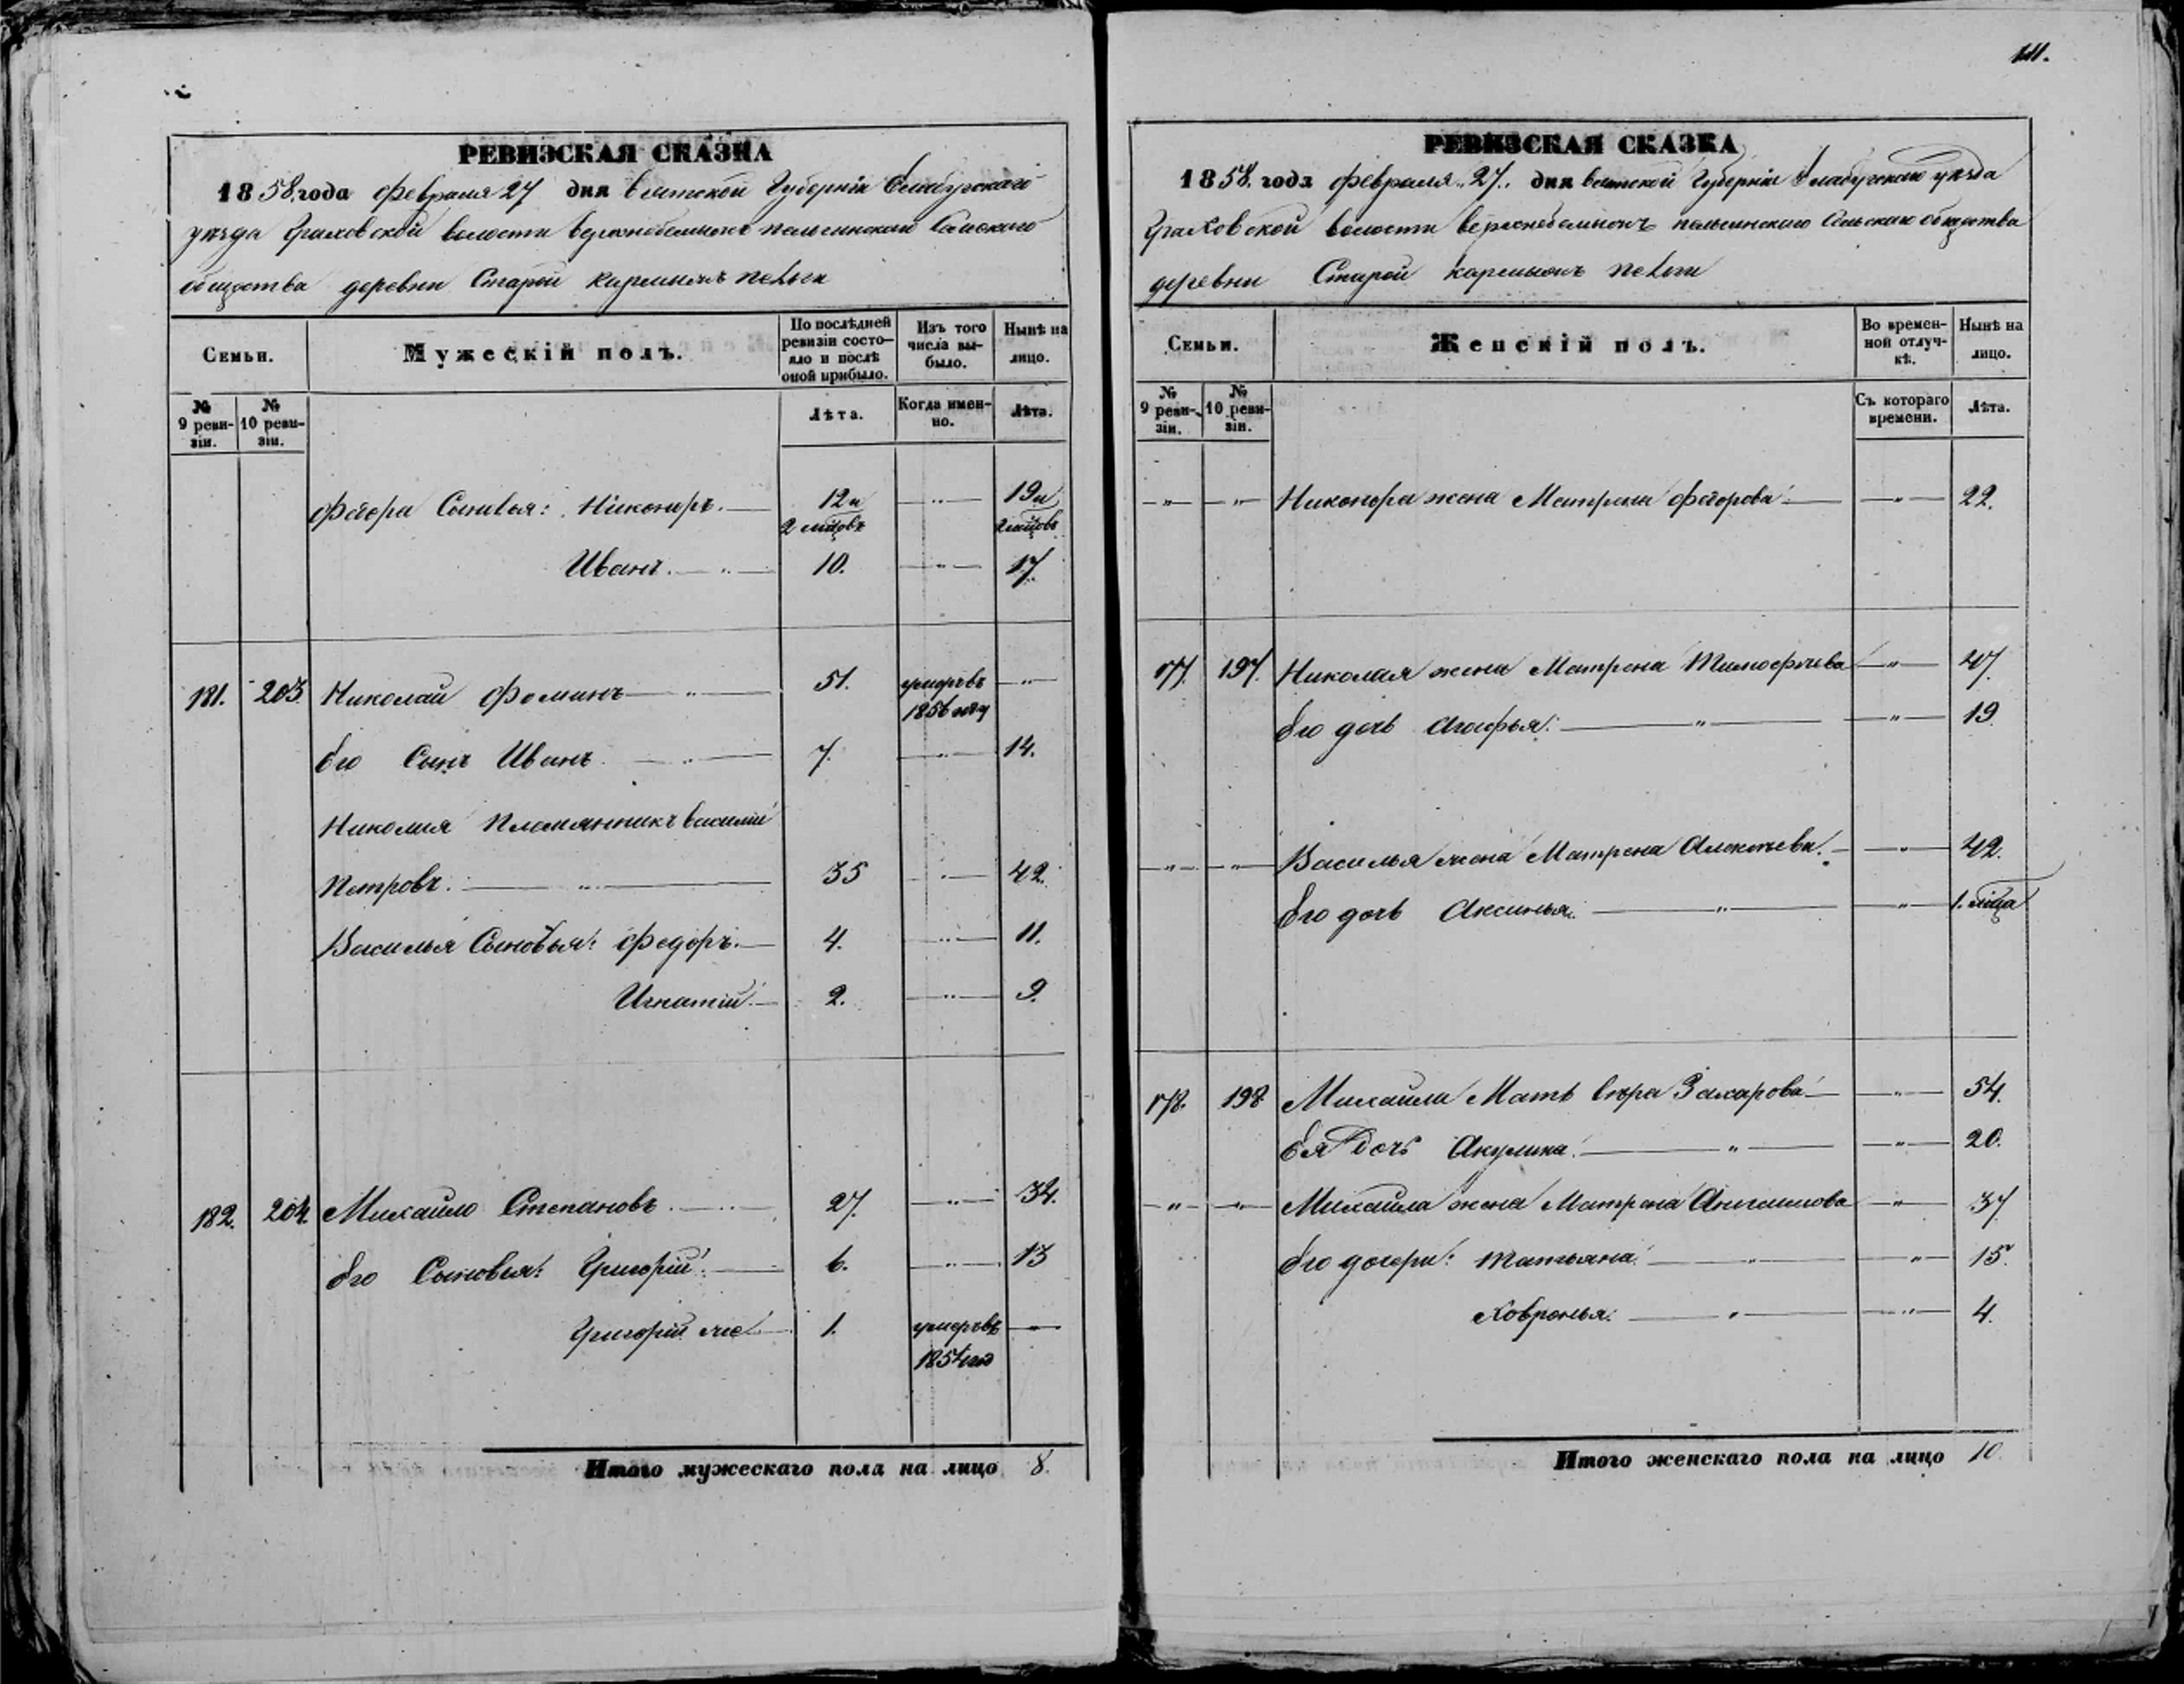 111.
РЕВИЗСКАЯ СКАЗКА
1858 года февраля 27 дня вятской Губерніи Елабугскаго
уезда Граховской волости польгинскаго Сельскаго
общества деревни Старой
Семьи.
Мужескій полъ.
По послѣдней ревизіи состояло и послѣ оной прибыло.
Изъ того числа выбыло.
Нынѣ на лицо.
№ 9 ревизіи.
№ 10 ревизіи.
Лѣта.
Когда именно.
Лѣта.
Федора Сыновья: Никоноръ. 12 и 2 мѣцовъ 19 и 2 мѣцовъ
Иванъ. 10. 17
181. 203. Николай Фоминъ 51. умеръ въ 1856 году
Его Сынъ Иванъ 7. 14.
Николая племянникъ василий
Петровъ. 35 42.
Василья Сыновья: Федоръ. 4. 11.
Игнатій. 2. 9.
182. 204. Михайло Степановъ 27. 34.
Его Сыновья: Григорій. 6. 13
Григорій же 1. умеръ въ 1854 год
Итого мужескаго пола на лицо 8.
РЕВИЗСКАЯ СКАЗКА
1858. года февраля "27" дня вятской Губерніи Елабугскаго уезда
Граховской волости польгинскаго Сельскаго общества
деревни Старой
Семьи.
Женскій полъ.
Во временной отлучкѣ.
Нынѣ на лицо.
№ 9 ревизіи.
№ 10 ревизіи.
Съ котораго времени.
Лѣта.
Никонора жена Матрена Федорова 22.
177. 197. Николая жена Матрена Тимофѣева 47.
Его дочь Агафья: 19
Василья жена Матрена Алексѣева. 42.
Его дочь Аксинья. 1. мѣца
178. 198 Михаила Мать вѣра Захарова 54.
Ея дочь Акулина. 20.
Михаила жена Матрена 37
Его дочери: Татьяна. 15.
Ховронья. 4.
Итого женскаго пола на лицо 10.